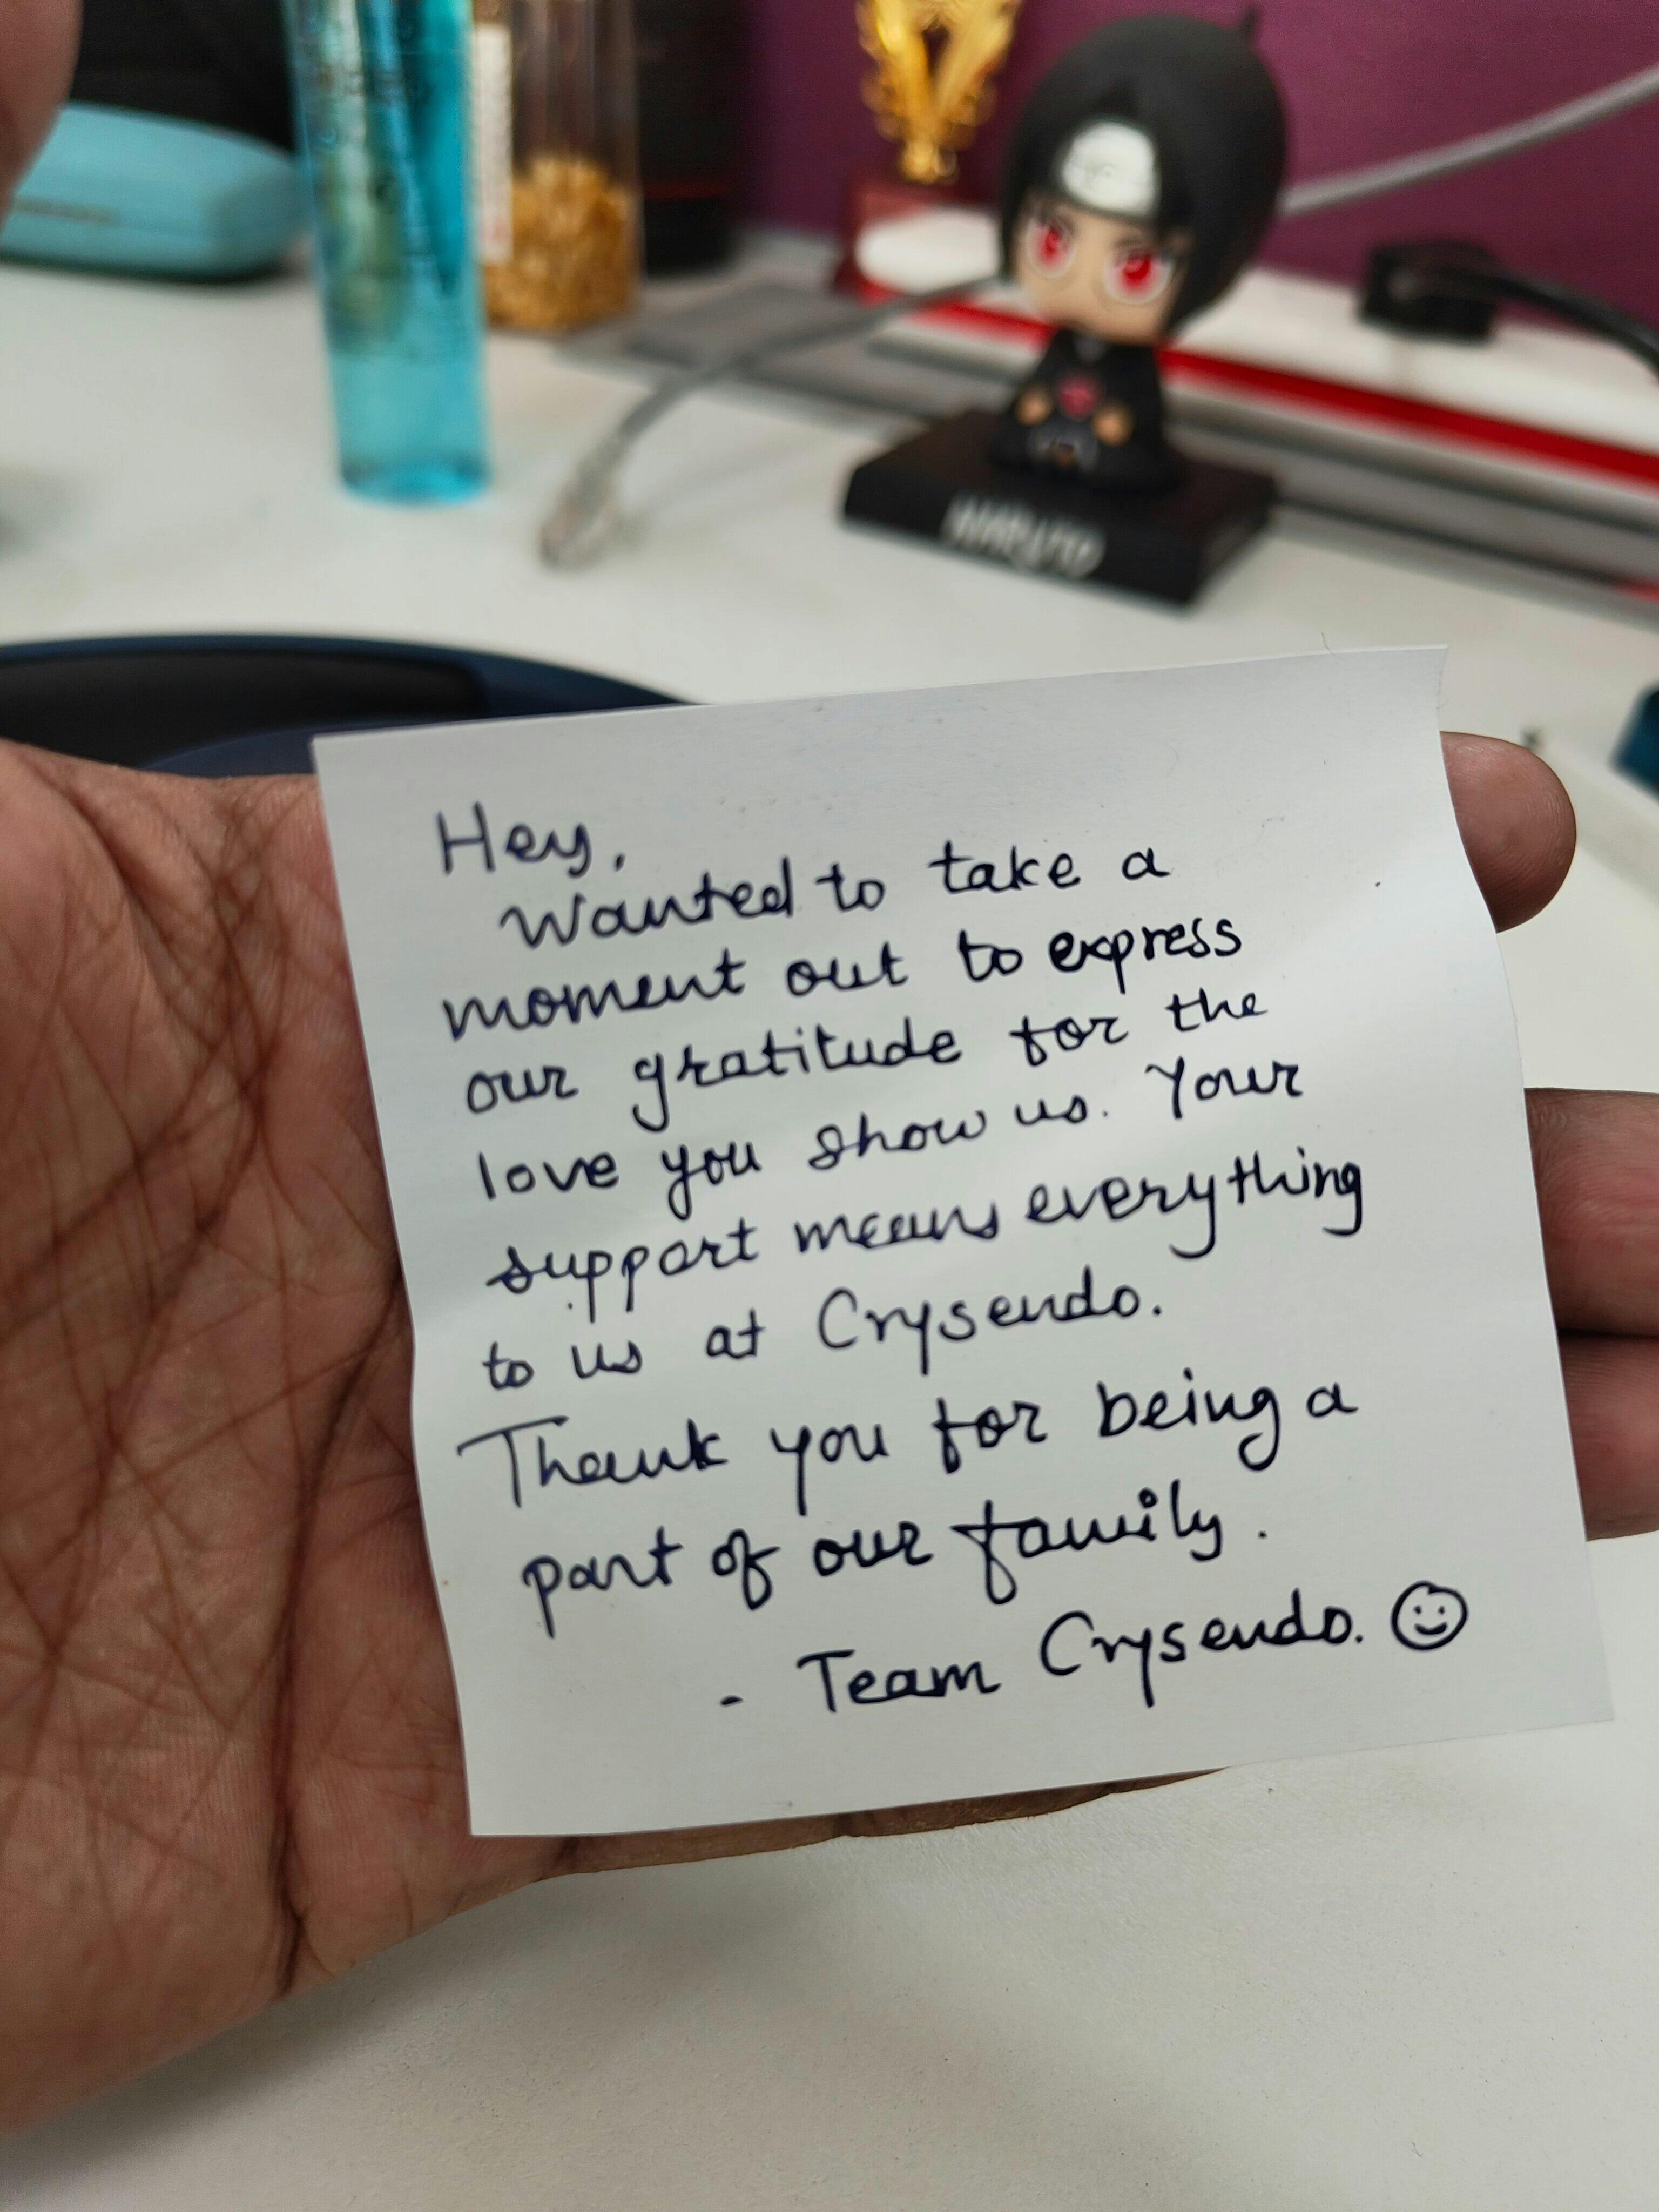 NARUTO
Hey,
Wanted to take a
moment out to express
our gratitude for the
love you show us. Your
support means everything
to us at Crysendo.
Thank you for being a
part of our family.
- Team Crysendo. ☺